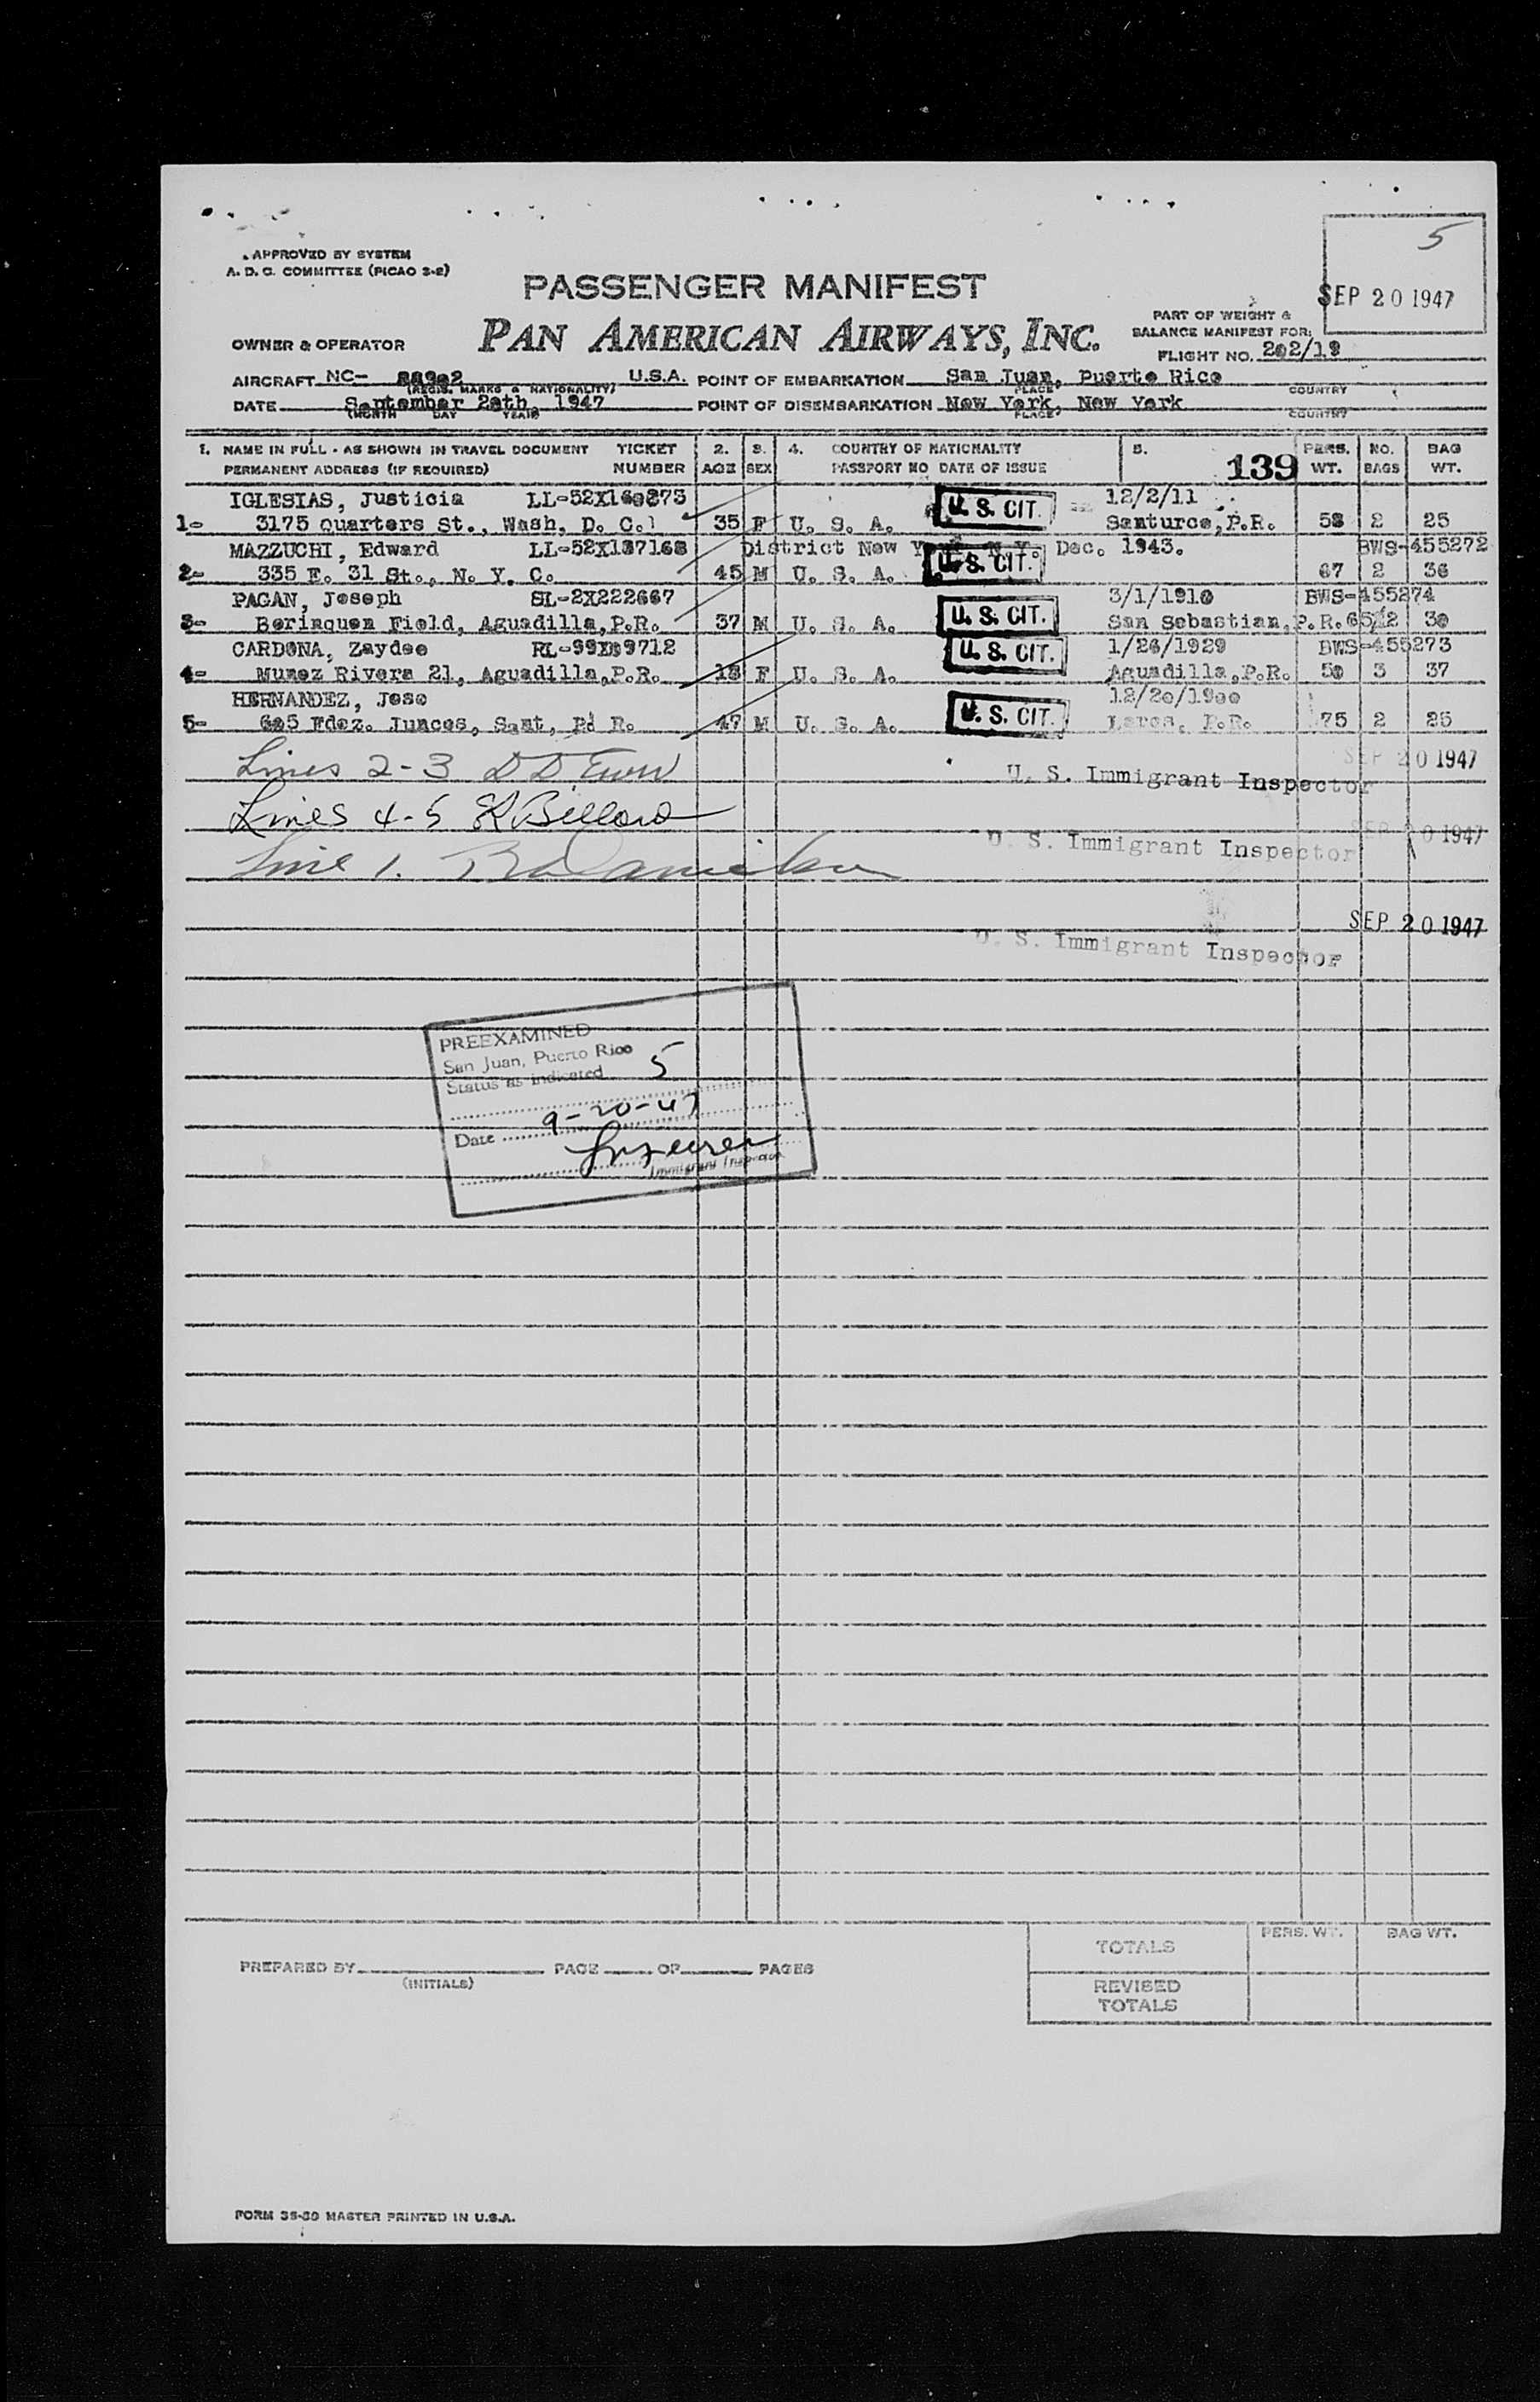 5
APPROVED BY SYSTEM
A. D. C. COMMITTEE (PICAO 2-2)
PASSENGER MANIFEST
SEP 20 1947
PAN AMERICAN AIRWAYS, INC.
PART OF WEIGHT &
BALANCE MANIFEST FOR:
OWNER & OPERATOR
FLIGHT NO. 202/19
AIRCRAFT NC- U.S.A. POINT OF EMBARKATION San Juan, Puerto Rico
(REGIS. MARKS & NATIONALITY) PLACE COUNTRY
DATE September 20th, 1947 POINT OF DISEMBARKATION New York, New York
(MONTH DAY YEAR) PLACE COUNTRY
1. NAME IN FULL - AS SHOWN IN TRAVEL DOCUMENT TICKET 2. 3. 4. COUNTRY OF NATIONALITY 5. PERS. NO. BAG
PERMANENT ADDRESS (IF REQUIRED) NUMBER AGE SEX PASSPORT NO DATE OF ISSUE 139 WT. BAGS WT.
IGLESIAS, Justicia U. S. CIT. 12/2/11
1- 3175 Quarters St., Wash, D. C. 35 F U. S. A. Santurce, P.R. 58 2 25
MAZZUCHI, Edward LL-52X137168 District New Dec. 1943. BWS-455272
2- 335 E. 31 St., N. Y. C. 45 M U. S. A. U. S. CIT. 67 2 36
PAGAN, Joseph SL-2X222667 3/1/1910 BWS-455274
3- Borinquen Field, Aguadilla, P.R. 37 M U. S. A. U. S. CIT. San Sebastian, P.R. 65 2 30
CARDONA, Zaydee U. S. CIT. 1/26/1929 BWS-455273
4- Munoz Rivera 21, Aguadilla, P.R. 18 F U. S. A. Aguadilla, P.R. 50 3 37
HERNANDEZ, Jose 12/20/1900
5- 605 Fdez. Juncos, Sant, P. R. 47 M U. S. A. U. S. CIT. Lares, P.R. 75 2 25
Lines 2-3 SEP 20 1947
U. S. Immigrant Inspector
Lines 4-5 SEP 20 1947
U. S. Immigrant Inspector
Line 1.
SEP 20 1947
U. S. Immigrant Inspector
PREEXAMINED
San Juan, Puerto Rico
Status as indicated 5
Date 9-20-47
Immigrant Inspector
TOTALS PERS. WT. BAG WT.
PREPARED BY PAGE OF PAGES
(INITIALS)
REVISED
TOTALS
FORM 35-80 MASTER PRINTED IN U.S.A.